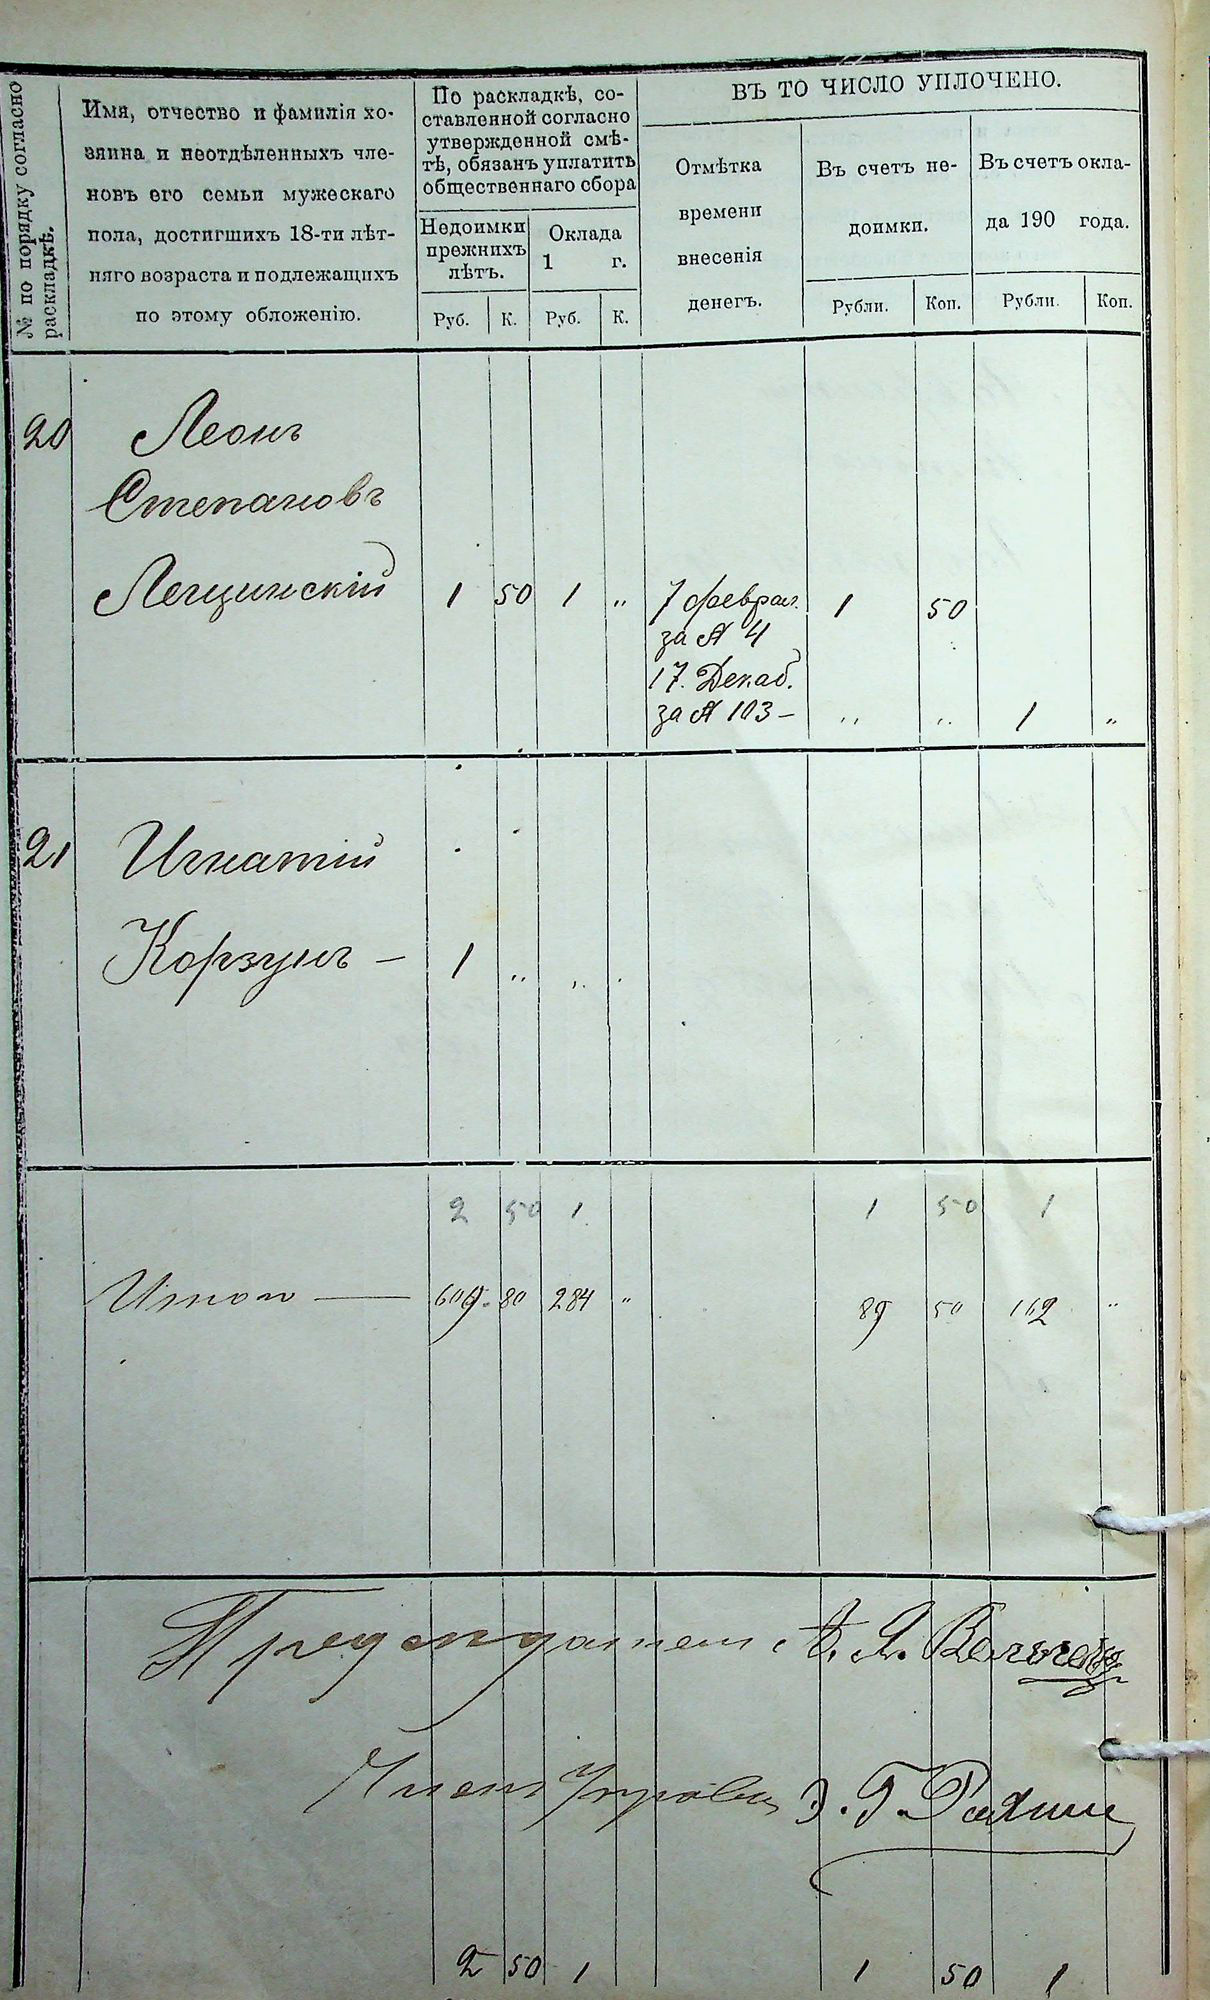 № по порядку согласно
раскладкѣ.
Имя, отчество и фамилія хо-
зяина и неотдѣленныхъ чле-
новъ его семьи мужескаго
пола, достигшихъ 18-ти лѣт-
няго возраста и подлежащихъ
по этому обложенію.
По раскладкѣ, со-
ставленной согласно
утвержденной смѣ-
тѣ, обязанъ уплатить
общественнаго сбора
Недоимки
прежнихъ
лѣтъ.
Оклада
1 г.
Руб. К. Руб. К.
ВЪ ТО ЧИСЛО УПЛОЧЕНО.
Отмѣтка
времени
внесенія
денегъ.
Въ счетъ не-
доимки.
Въ счетъ окла-
да 190 года.
Рубли. Коп. Рубли. Коп.
20 Леонъ
Степановъ
Лещинскій 1 50 1 " 7 феврал. 1 50
за № 4
17. Декаб.
за № 103 - " " 1 "
21 Игнатій
Корзунъ - 1 " "
2 50 1 1 50 1
Итого — 609 80 284 " 89 50 162 "
Предсѣдатель А. Я.
Членъ Управы Э. Г.
2 50 1 1 50 1